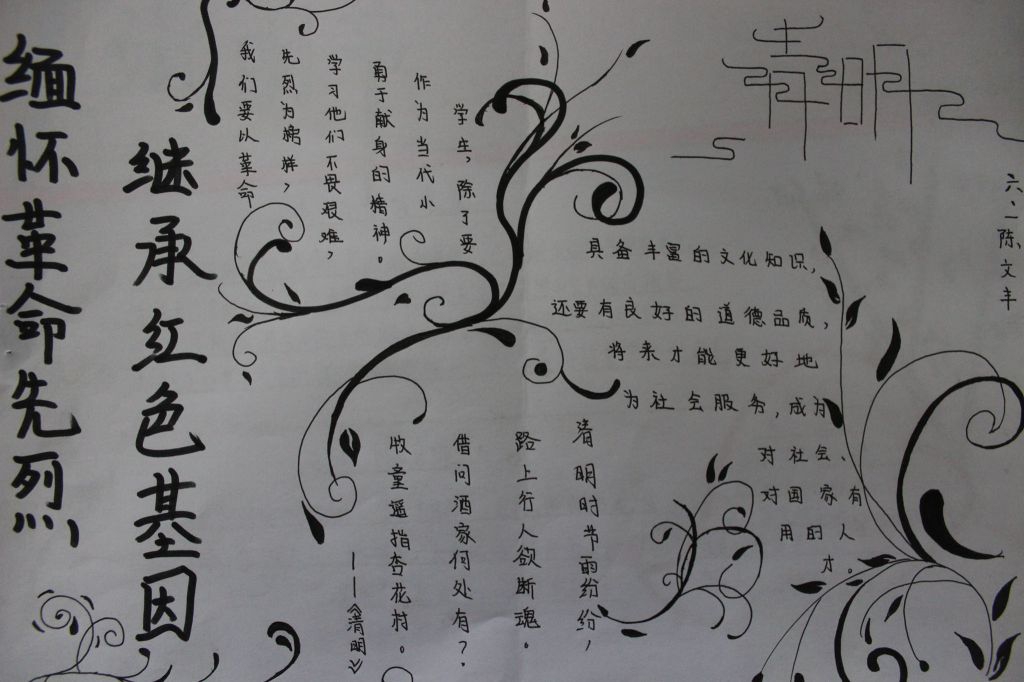 缅怀革命先烈
继承红色基因
我们要以革命
先烈为榜样,
学习他们不畏艰难,
勇于献身的精神。
作为当代小
学生,除了要
具备丰富的文化知识,
还要有良好的道德品质,
将来才能更好地
为社会服务,成为
对社会、
对国家有
用的人
才。
清明时节雨纷纷,
路上行人欲断魂。
借问酒家何处有?
牧童遥指杏花村。
——《清明》
清明
六、一陈文丰